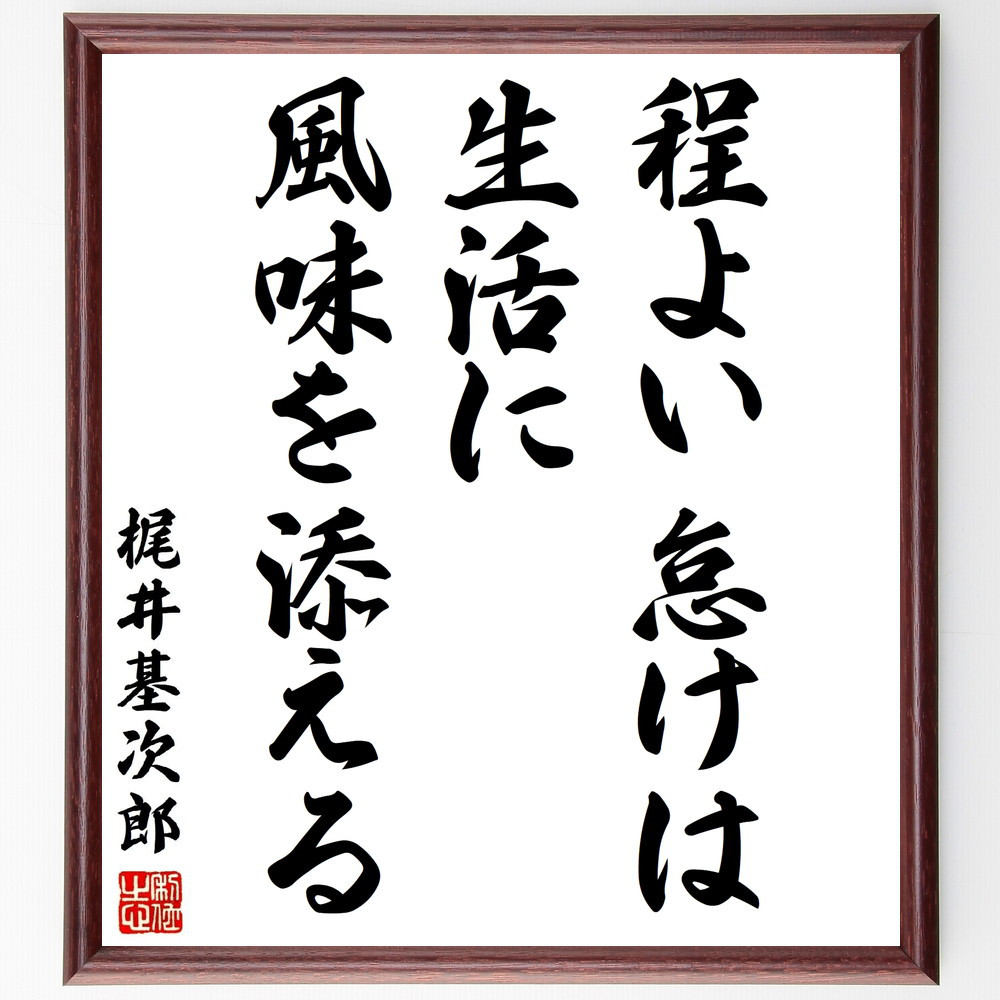 程よい 怠けは
生活に
風味を添える
梶井基次郎